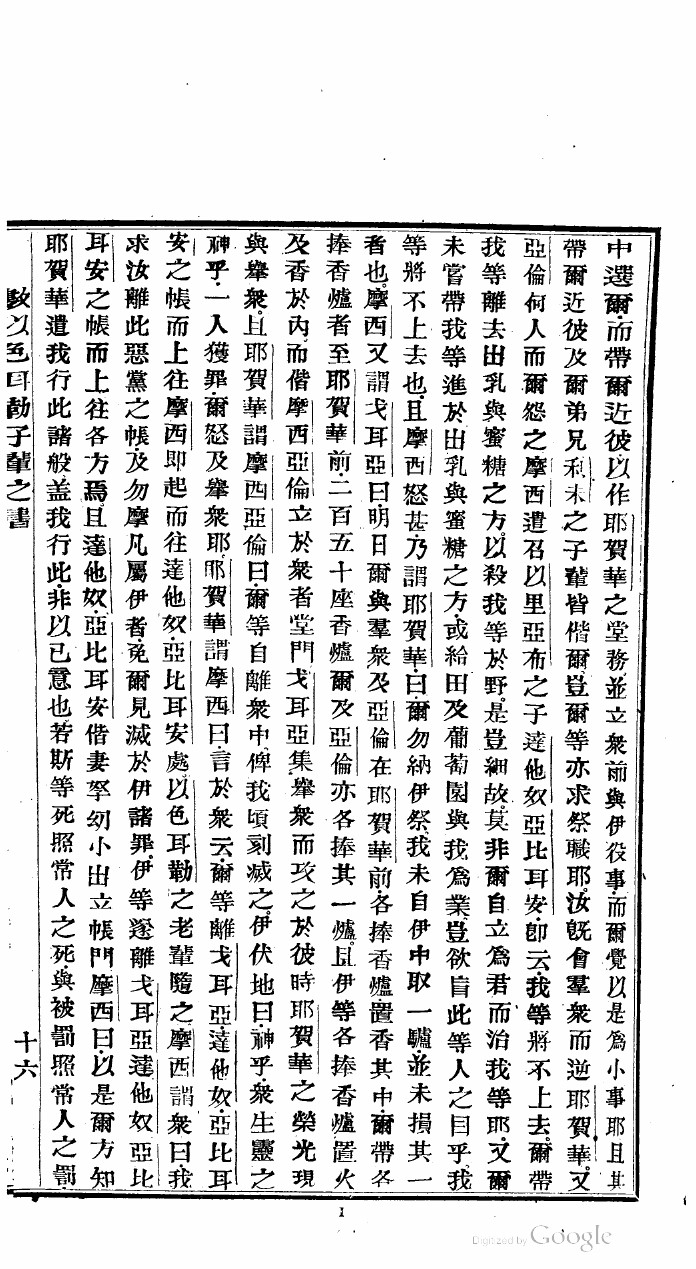 中選爾而帶爾近彼以作耶賀華之堂務並立衆前與伊役事而爾覺以是爲小事耶且其
帶爾近彼及爾弟兄利未之子輩皆偕爾豈爾等亦求祭職耶汝旣會羣衆而逆耶賀華又
亞倫何人而爾怨之摩西遣召以里亞布之子達他奴亞比耳安卽云我等將不上去爾帶
我等離去出乳與蜜糖之方以殺我等於野是豈細故莫非爾自立爲君而治我等耶又爾
未嘗帶我等進於出乳與蜜糖之方或給田及葡萄園與我爲業豈欲盲此等人之目乎我
等將不上去也且摩西怒甚乃謂耶賀華曰爾勿納伊祭我未自伊中取一驢並未損其一
者也摩西又謂戈耳亞曰明日爾與羣衆及亞倫在耶賀華前各捧香爐置香其中爾帶各
捧香爐者至耶賀華前二百五十座香爐爾及亞倫亦各捧其一爐且伊等各捧香爐置火
及香於內而偕摩西亞倫立於衆者堂門戈耳亞集舉衆而攻之於彼時耶賀華之榮光現
與舉衆且耶賀華謂摩西亞倫曰爾等自離衆中俾我頃刻滅之伊伏地曰神乎衆生靈之
神乎一人獲罪爾怒及舉衆耶耶賀華謂摩西曰言於衆云爾等離戈耳亞達他奴亞比耳
安之帳而上往摩西卽起而往達他奴亞比耳安處以色耳勒之老輩隨之摩西謂衆曰我
求汝離此惡黨之帳及勿摩凡屬伊者免爾見滅於伊諸罪伊等遂離戈耳亞達他奴亞比
耳安之帳而上往各方焉且達他奴亞比耳安偕妻孥幼小出立帳門摩西曰以是爾方知
耶賀華遣我行此諸般蓋我行此非以已意也若斯等死照常人之死與被罰照常人之罰
數以色耳勒子輩之書 十六
1
Digitized by Google